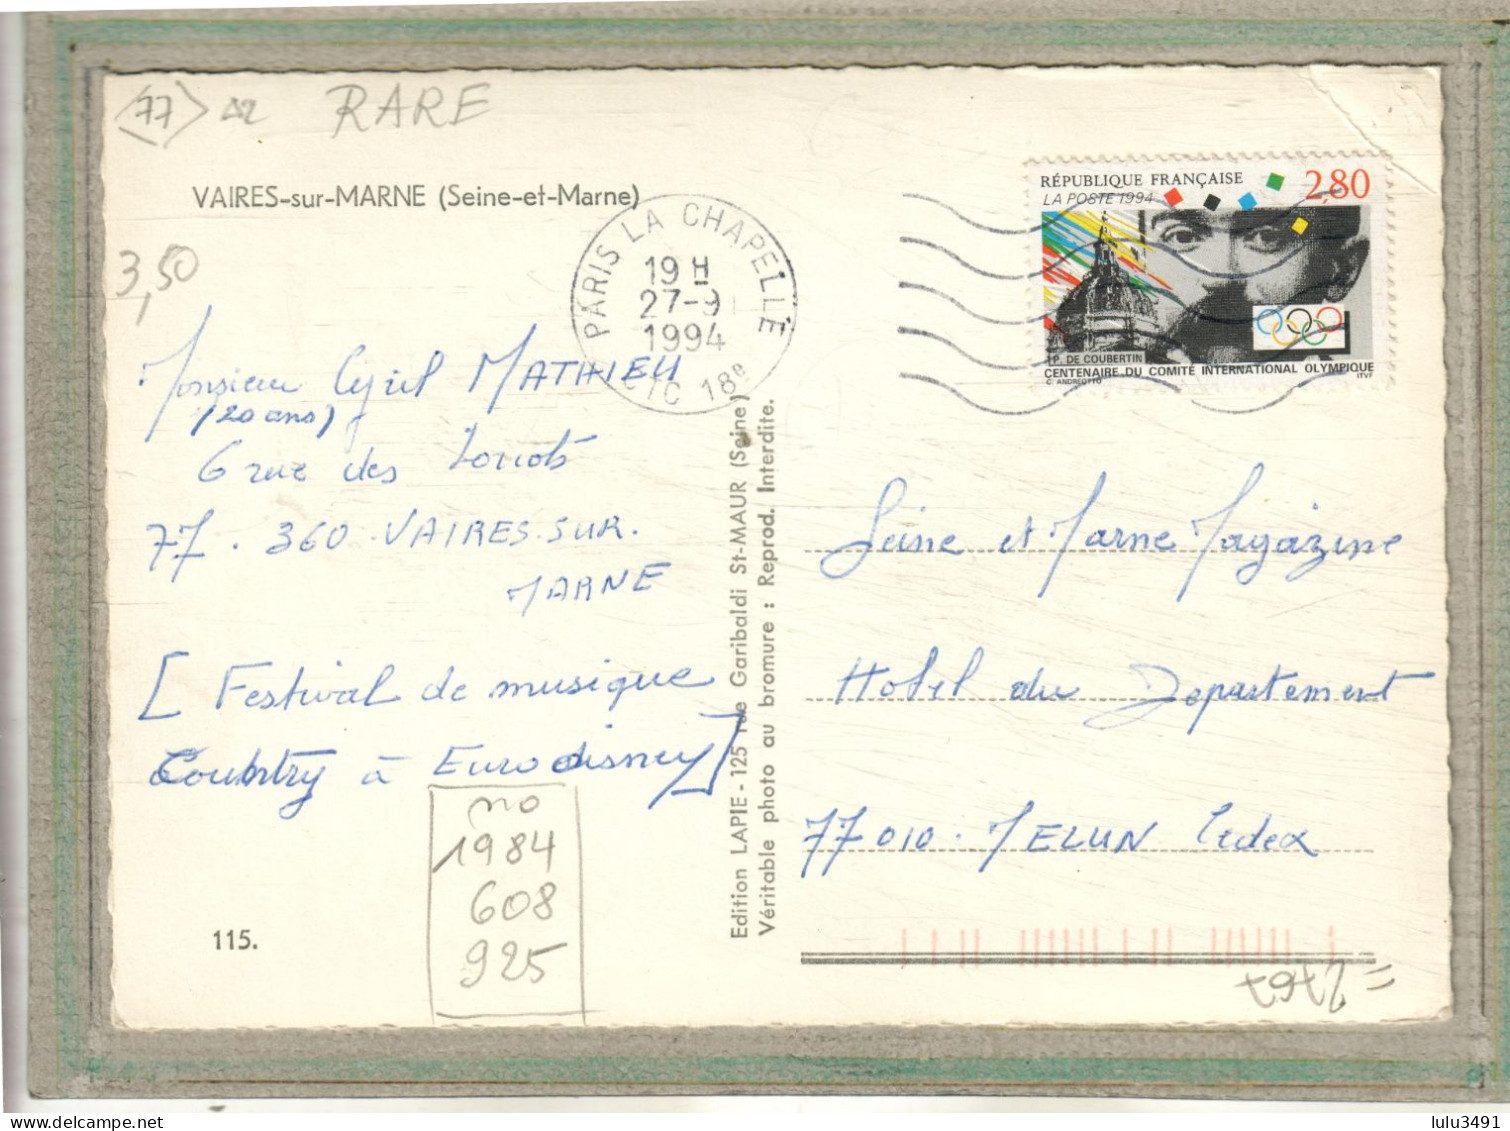 (77) RARE
VAIRES-sur-MARNE (Seine-et-Marne)
3,50
PARIS LA CHAPELLE
19 H
27-9
1994
18e
RÉPUBLIQUE FRANÇAISE 2,80
LA POSTE 1994
P. DE COUBERTIN
CENTENAIRE DU COMITÉ INTERNATIONAL OLYMPIQUE
C. ANDREOTTO ITVF
Monsieur Cyril MATHIEU
(20 ans)
6 rue des
77.360.VAIRES.SUR.
MARNE
[Festival de musique
Country à Eurodisney]
no
1984
608
925
115.
Edition LAPIE - 125 rue Garibaldi St-MAUR (Seine)
Véritable photo au bromure : Reprod. Interdite.
Seine et Marne Magazine
Hotel du Departement
77010. MELUN Cedex